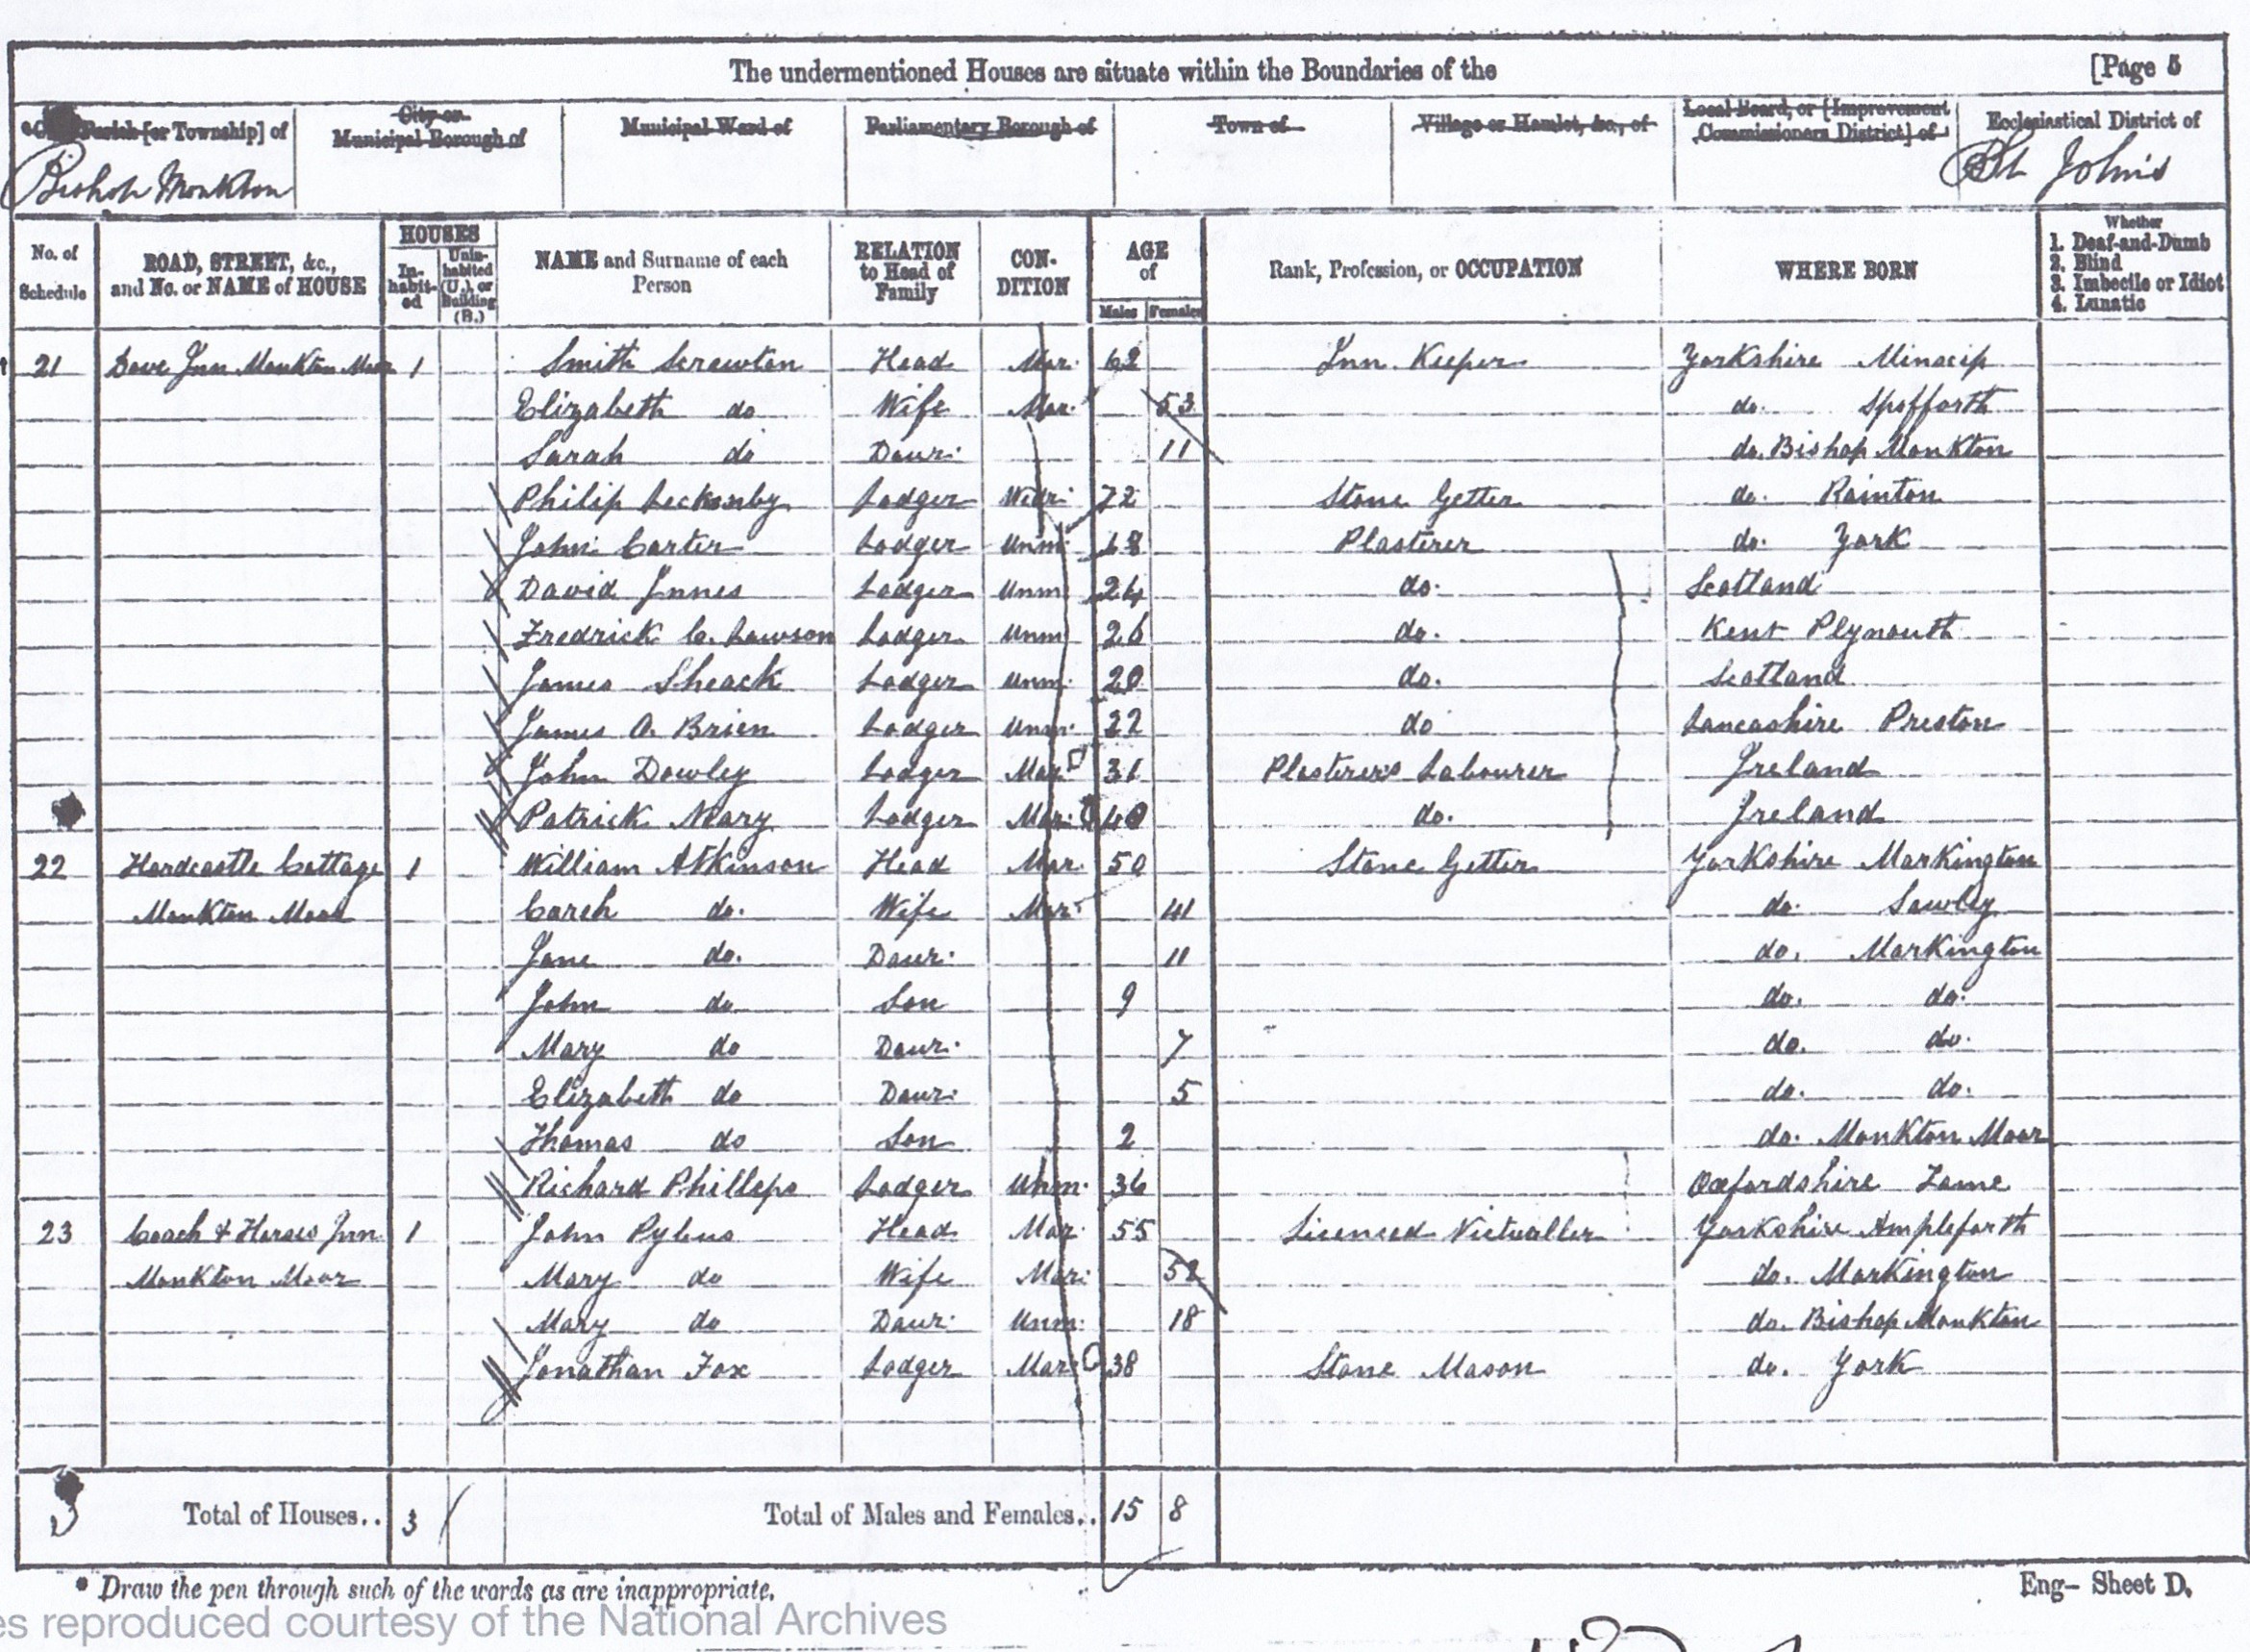 The undermentioned Houses are situate within the Boundaries of the [Page 5
Parish [or Township] of City or Municipal Borough of Municipal Ward of Parliamentary Borough of Town of Village or Hamlet, &c., of Local Board, or [Improvement Commissioners District] of Ecclesiastical District of
Bishop Monkton St John's
No. of Schedule ROAD, STREET, &c., and No. or NAME of HOUSE HOUSES Inhabited Uninhabited (U.), or Building (B.) NAME and Surname of each Person RELATION to Head of Family CONDITION AGE of Males Females Rank, Profession, or OCCUPATION WHERE BORN Whether 1. Deaf-and-Dumb 2. Blind 3. Imbecile or Idiot 4. Lunatic
21 Dove Inn Monkton Moor 1 Smith Screwton Head Mar. 62 Inn Keeper Yorkshire Minscip
Elizabeth do Wife Mar. 53 do. Spofforth
Sarah do Daur. 11 do. Bishop Monkton
Philip Leckonby Lodger Widr. 72 Stone Getter do. Rainton
John Carter Lodger Unm. Plasterer do. York
David Innes Lodger Unm 24 do. Scotland
Fredrick C. Lawson Lodger Unm 26 do. Kent Plymouth
James Sheack Lodger Unm. 20 do. Scotland
James O. Brien Lodger Unm. 22 do Lancashire Preston
John Dowley Lodger Mar 31 Plasterer's Labourer Ireland
Patrick Lodger Mar. 40 do. Ireland
22 Hardcastle Cottage 1 William Atkinson Head Mar 50 Stone Getter Yorkshire Markington
Monkton Moor do. Wife Mar. 41 do. Sawley
Jane do. Daur. 11 do. Markington
John do Son 9 do. do.
Mary do Daur. 7 do. do.
Elizabeth do Daur. 5 do. do.
Thomas do Son 2 do. Monkton Moor
Richard Phillips Lodger Unm. 36 Oxfordshire Tame
23 Coach & Horses Inn 1 John Pybus Head Mar. 55 Licenced Victualler Yorkshire Ampleforth
Monkton Moor Mary do Wife Mar. 52 do. Markington
Mary do Daur. Unm. 18 do. Bishop Monkton
Jonathan Fox Lodger Mar. 38 Stone Mason do. York
3 Total of Houses.. 3 Total of Males and Females.. 15 8
* Draw the pen through such of the words as are inappropriate. Eng- Sheet D.
es reproduced courtesy of the National Archives